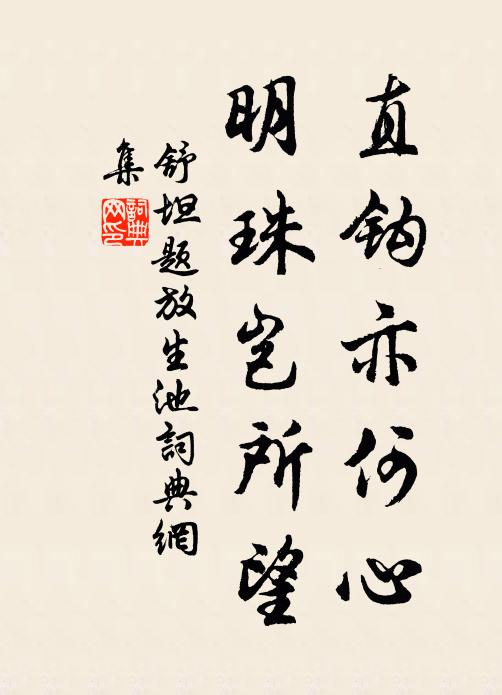 直鈎亦何心
明珠岂所望
舒坦题放生池詞典網
集
詞典
网印